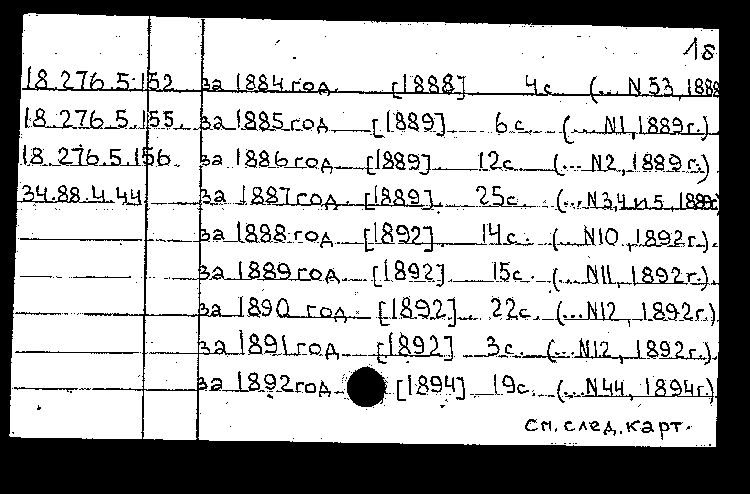 18
18.276.5.152 за 1884 год. [1888] 4с (... N 53, 1888
18.276.5.155. за 1885 год [1889] 6с (... N1, 1889г.)
18.276.5.156 за 1886 год [1889] 12с (... N2, 1889г.)
34.88.4.44 за 1887 год [1889] 25с. (... N3,4 и 5, 1889г)
за 1888 год [1892] 14с. (... N10, 1892г.).
за 1889 год [1892] 15с. (... N11, 1892г.)
за 1890 год [1892] 22с. (... N12, 1892г.)
за 1891 год [1892] 3с. (... N12, 1892г.).
за 1892 год [1894] 19с. (... N44, 1894г.)
см. след. карт.